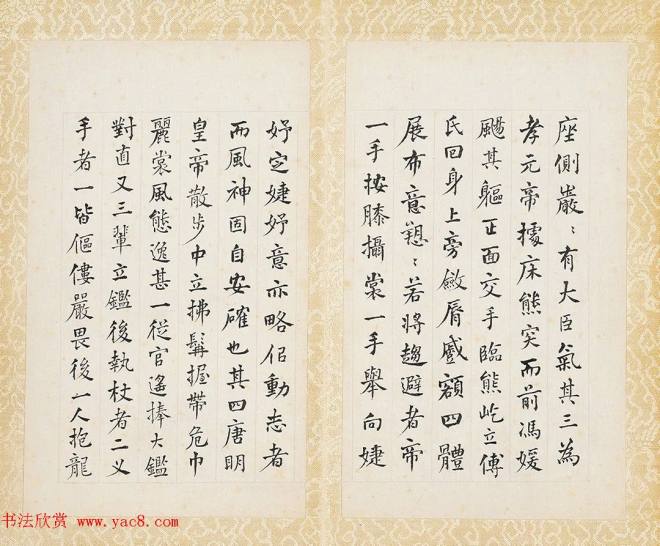 座側巖〻有大臣氣其三為
孝元帝據床熊突而前馮媛
颺其軀正面交手臨熊屹立傅
氏回身上旁斂脣蹙額四體
展布意〻若將趨避者帝
一手按膝攝裳一手舉向婕
妤定婕妤意亦略佀動志者
而風神固自安確也其四唐明
皇帝散步中立拂髯握帶危巾
麗裳風態逸甚一從官遙捧大鑑
對直又三輩立鑑後執杖者二乂
手者一皆傴僂嚴畏後一人抱龍
书法欣赏 www.yac8.com